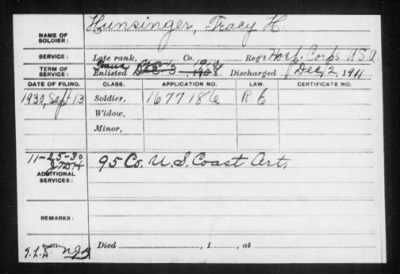 NAME OF SOLDIER: Hunsinger, Tracy H.
SERVICE: Late rank, Co. Reg't Hosp. Corps U.S.A
TERM OF SERVICE: Enlisted Dec 3 1908 Discharged Dec, 2, 1911
DATE OF FILING. CLASS. APPLICATION NO. LAW. CERTIFICATE NO.
1930, Sept 13 Soldier, 1677186
Widow,
Minor,
11-25-30 95 Co. U.S. Coast Art.
ADDITIONAL SERVICES:
REMARKS:
Died , 1 , at